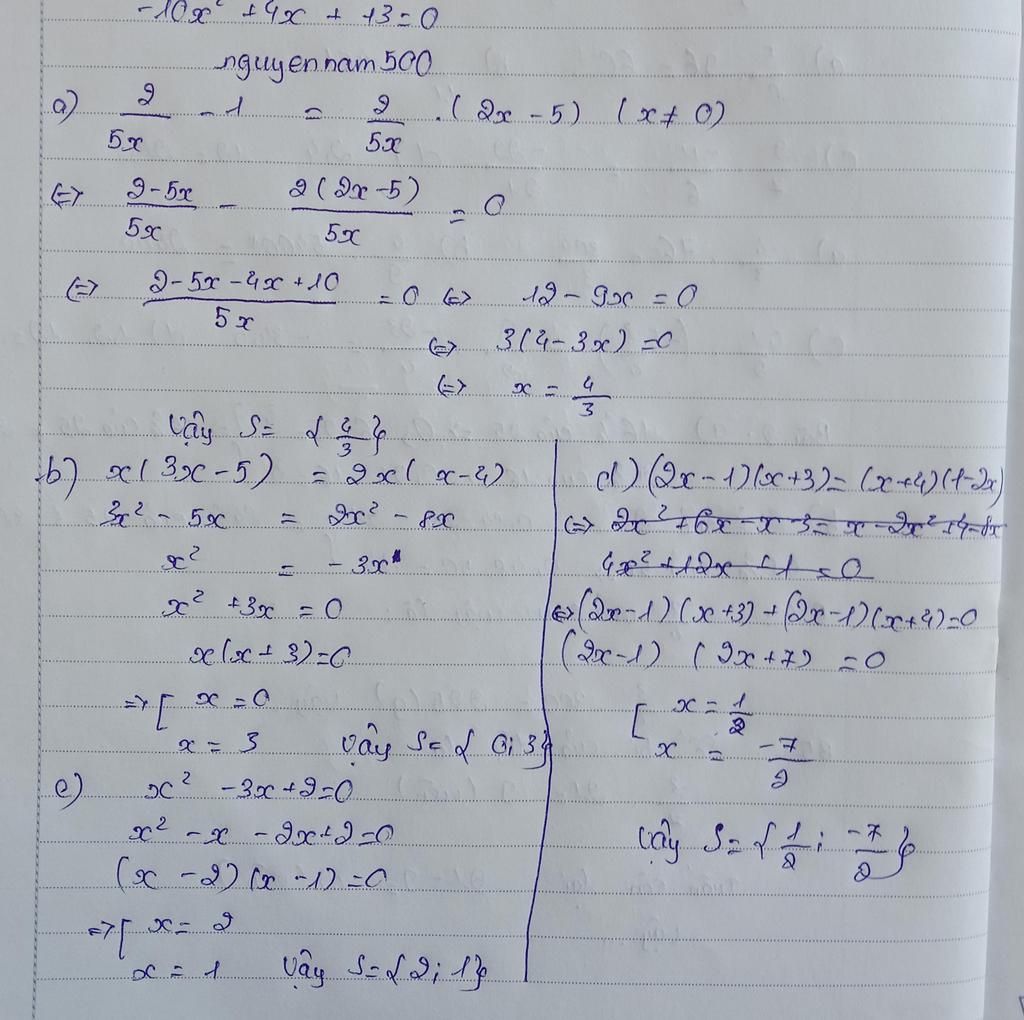 -10x² + 4x + 13 = 0
nguyennam500
a) 2/5x - 1 = 2/5x . (2x - 5) (x ≠ 0)
<=> 2-5x/5x - 2(2x-5)/5x = 0
<=> 2-5x-4x+10/5x = 0 <=> 12 - 9x = 0
<=> 3(4-3x) = 0
<=> x = 4/3
Vậy S = { 4/3 }
b) x(3x-5) = 2x(x-4)
3x² - 5x = 2x² - 8x
x² = -3x
x² + 3x = 0
x(x+3)=0
=> [ x = 0
x = 3 Vậy S = { 0; 3}
e) x² - 3x + 2 = 0
x² - x - 2x + 2 = 0
(x - 2)(x - 1) = 0
=> [ x = 2
x = 1 Vậy S = {2; 1}
d) (2x-1)(x+3) = (x+4)(1-2x)
<=> 2x² + 6x - x - 3 = x - 2x² + 4 - 8x
4x² + 12x + 1 = 0
<=> (2x-1)(x+3) + (2x-1)(x+4) = 0
(2x-1) (2x+7) = 0
[ x = 1/2
x = -7/2
Vậy S = { 1/2 ; -7/2 }